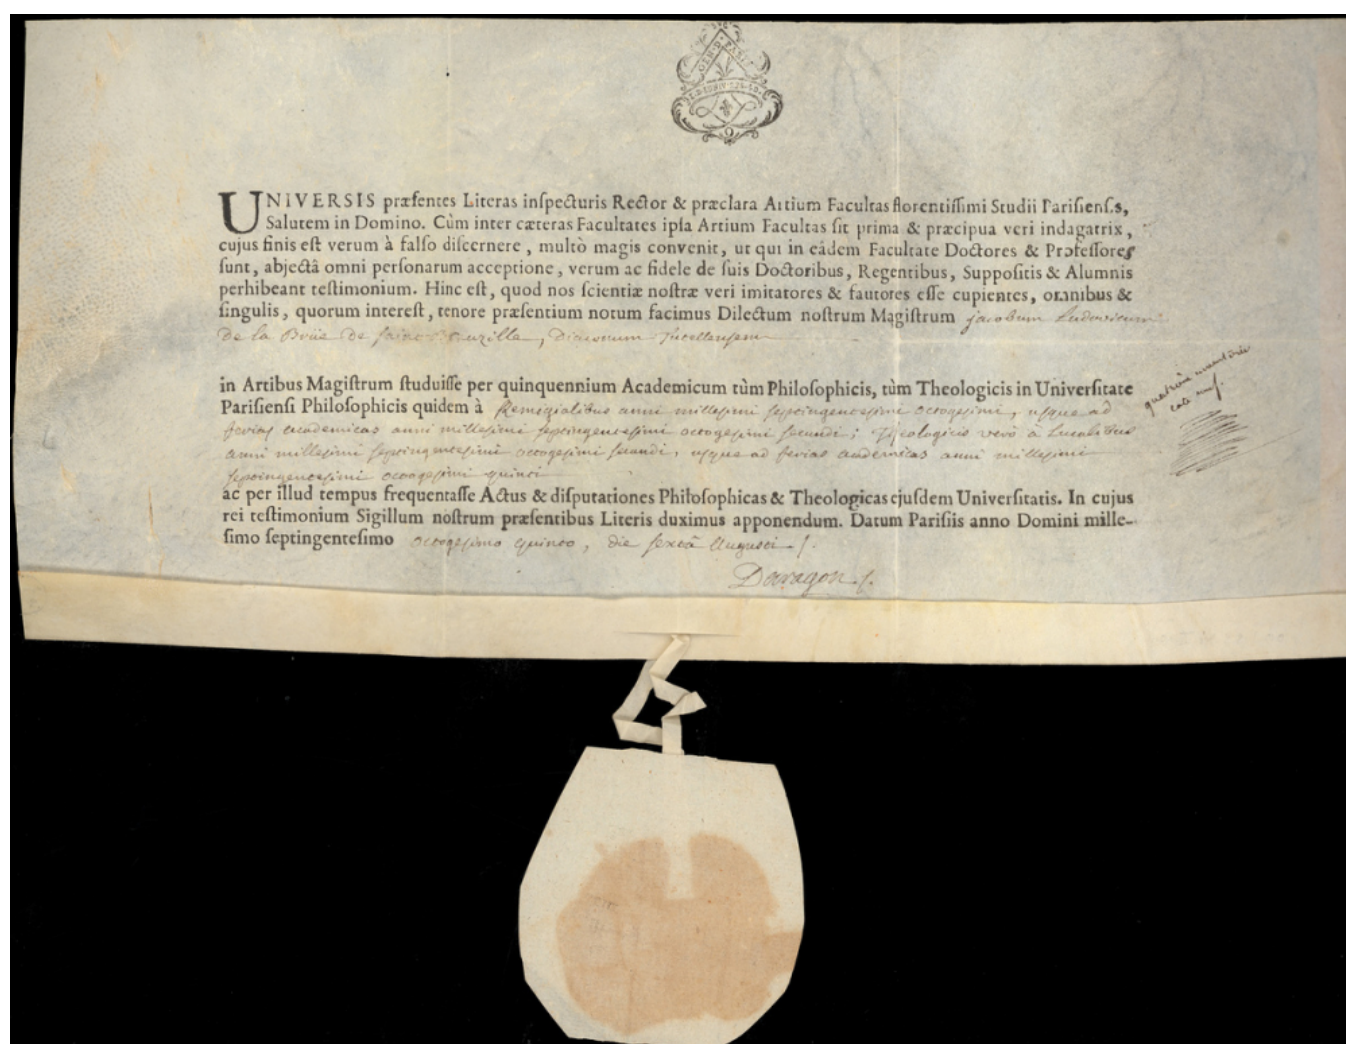 GEN. D. PARIS
9
UNIVERSIS præſentes Literas inſpecturis Rector & præclara Artium Facultas florentiſſimi Studii Pariſienſis,
Salutem in Domino. Cùm inter cæteras Facultates ipſa Artium Facultas ſit prima & præcipua veri indagatrix,
cujus finis eſt verum à falſo diſcernere, multò magis convenit, ut qui in eâdem Facultate Doctores & Profeſſores
ſunt, abjectâ omni perſonarum acceptione, verum ac fidele de ſuis Doctoribus, Regentibus, Suppoſitis & Alumnis
perhibeant teſtimonium. Hinc eſt, quod nos ſcientiæ noſtræ veri imitatores & fautores eſſe cupientes, omnibus &
ſingulis, quorum intereſt, tenore præſentium notum facimus Dilectum noſtrum Magiſtrum jacobum Ludovicum
de la Brüe de ſaint
in Artibus Magiſtrum ſtuduiſſe per quinquennium Academicum tùm Philoſophicis, tùm Theologicis in Univerſitate
Pariſienſi Philoſophicis quidem à Remigialibus anni milleſimi ſeptingenteſimi octogeſimi, uſque ad
ferias academicas anni milleſimi ſeptingenteſimi octogeſimi ſecundi; Theologicis verò à Lucalibus
anni milleſimi ſeptingenteſimi octogeſimi ſecundi, uſque ad ferias academicas anni milleſimi
ſeptingenteſimi octogeſimi quinti
ac per illud tempus frequentaſſe Actus & diſputationes Philoſophicas & Theologicas ejuſdem Univerſitatis. In cujus
rei teſtimonium Sigillum noſtrum præſentibus Literis duximus apponendum. Datum Pariſiis anno Domini mille-
ſimo ſeptingenteſimo octogeſimo quinto, die ſextâ Auguſti
Darragon